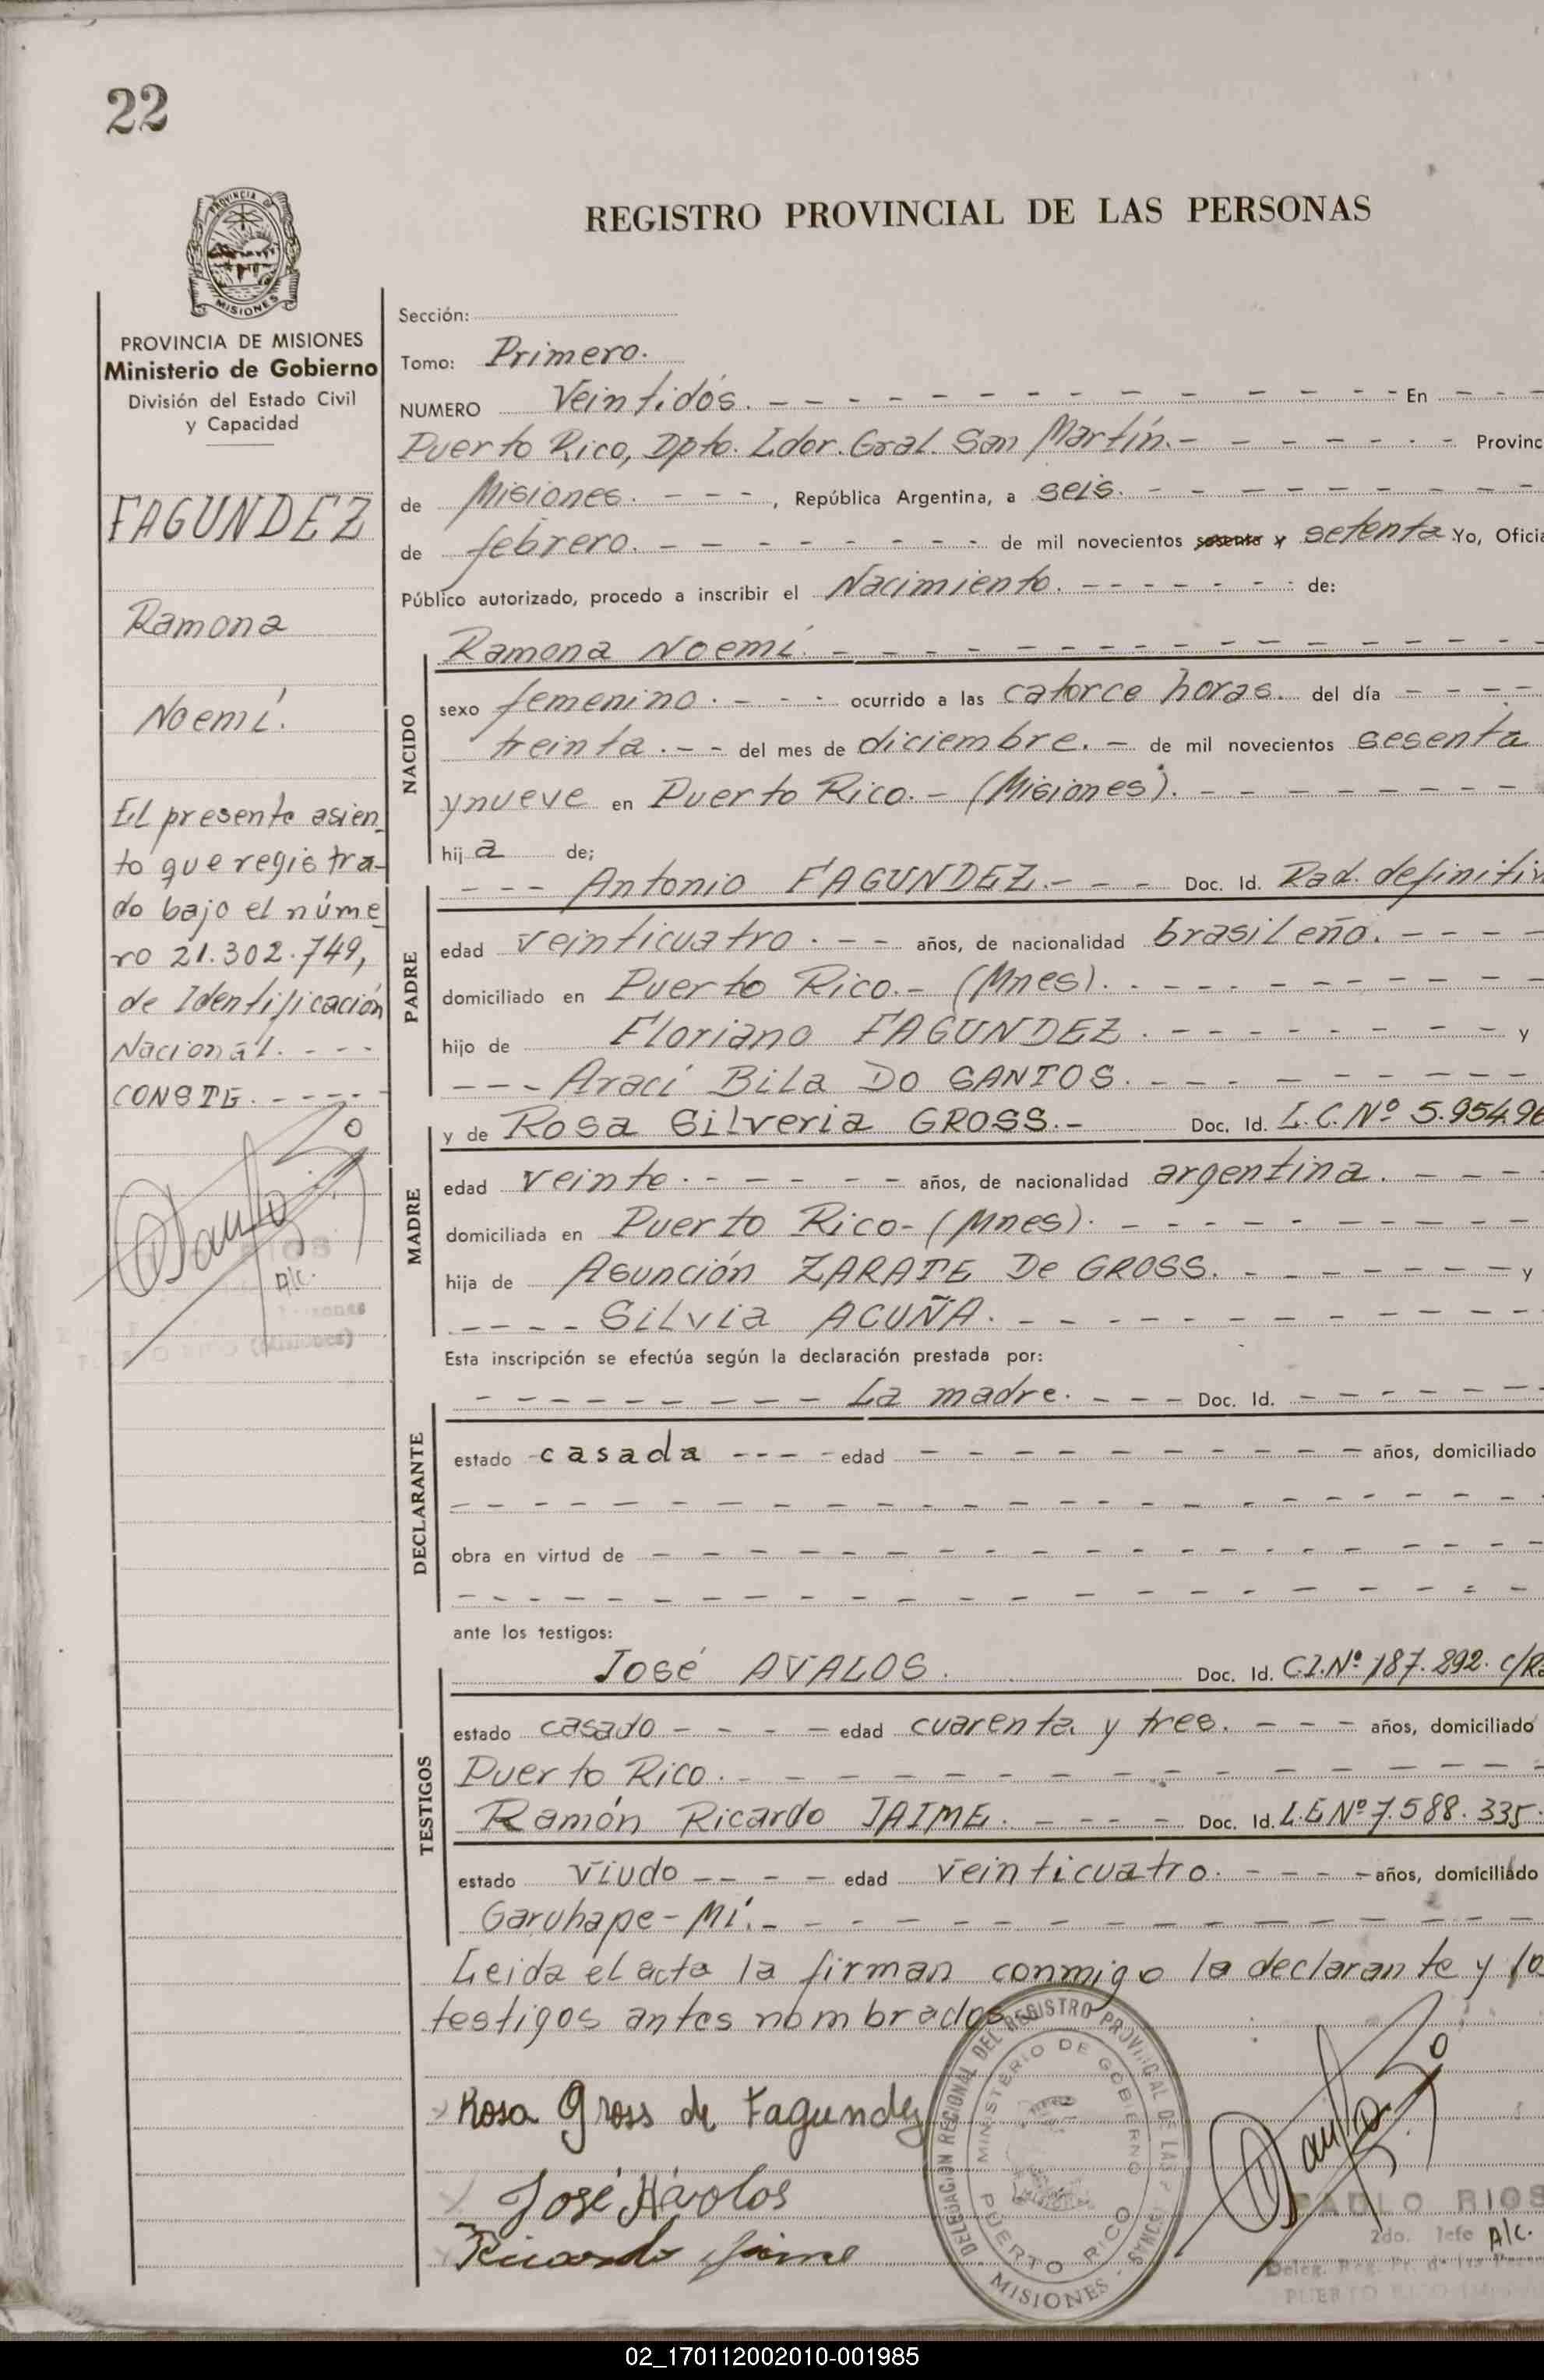 22
PROVINCIA DE
MISIONES
REGISTRO PROVINCIAL DE LAS PERSONAS
PROVINCIA DE MISIONES
Ministerio de Gobierno
División del Estado Civil
y Capacidad
FAGUNDEZ
Ramona
Noemí.
El presente asien
to que registra-
do bajo el núme
ro 21.302.749,
de Identificación
Nacional. - - -
CONSTE. - - - -
RIOS
A/c.
(Misiones)
Sección:
Tomo: Primero.
NUMERO Veintidós. - - - En - - -
Puerto Rico, Dpto. Ldor. Gral. San Martín. - - - Provinc
de Misiones. - - - , República Argentina, a seis. - - -
de febrero. - - - de mil novecientos sesenta y setenta Yo, Oficia
Público autorizado, procedo a inscribir el Nacimiento. - - - de:
NACIDO
Ramona Noemí. - - -
sexo femenino. - - - ocurrido a las catorce horas. del día - - - -
treinta. - - del mes de diciembre. - de mil novecientos sesenta
ynueve en Puerto Rico. - (Misiones). - - -
hij a de;
PADRE
- - - Antonio FAGUNDEZ. - - - Doc. Id. Rad. definitiv
edad veinticuatro. - - años, de nacionalidad brasileño. - - - -
domiciliado en Puerto Rico. - (Mnes). - - -
hijo de Floriano FAGUNDEZ. - - - y
- - - Araci Bila Do SANTOS. - - -
MADRE
y de Rosa Silveria GROSS. - Doc. Id. L.C.Nº 5.954.96
edad veinte. - - - años, de nacionalidad argentina. - - -
domiciliada en Puerto Rico - (Mnes). - - -
hija de Asunción ZARATE De GROSS. - - - y
- - - - Silvia ACUÑA. - - -
Esta inscripción se efectúa según la declaración prestada por:
DECLARANTE
- - - La madre. - - - Doc. Id. - - -
estado casada - - - - edad - - - años, domiciliado
- - -
obra en virtud de - - -
- - -
ante los testigos:
TESTIGOS
José AVALOS. Doc. Id. C.I.Nº 187.892. c/R
estado casado - - - - edad cuarenta y tres. - - - años, domiciliado
Puerto Rico. - - -
Ramón Ricardo JAIME. - - - - Doc. Id. L.E Nº 7.588.335.
estado viudo - - - - edad veinticuatro. - - - - años, domiciliado
Garuhape - Mí. - - -
Leida el acta la firman conmigo la declarante y lo
testigos antes nombrados
Rosa Gross de Fagundez
José Avalos
Ricardo Jaime
DELEGACION REGIONAL DEL REGISTRO PROVINCIAL DE LAS PERSONAS
MINISTERIO DE GOBIERNO
PUERTO RICO
MISIONES
PABLO RIOS
2do. Jefe A/c.
Deleg. Reg. Pr. de las Person
PUERTO RICO
02_170112002010-001985